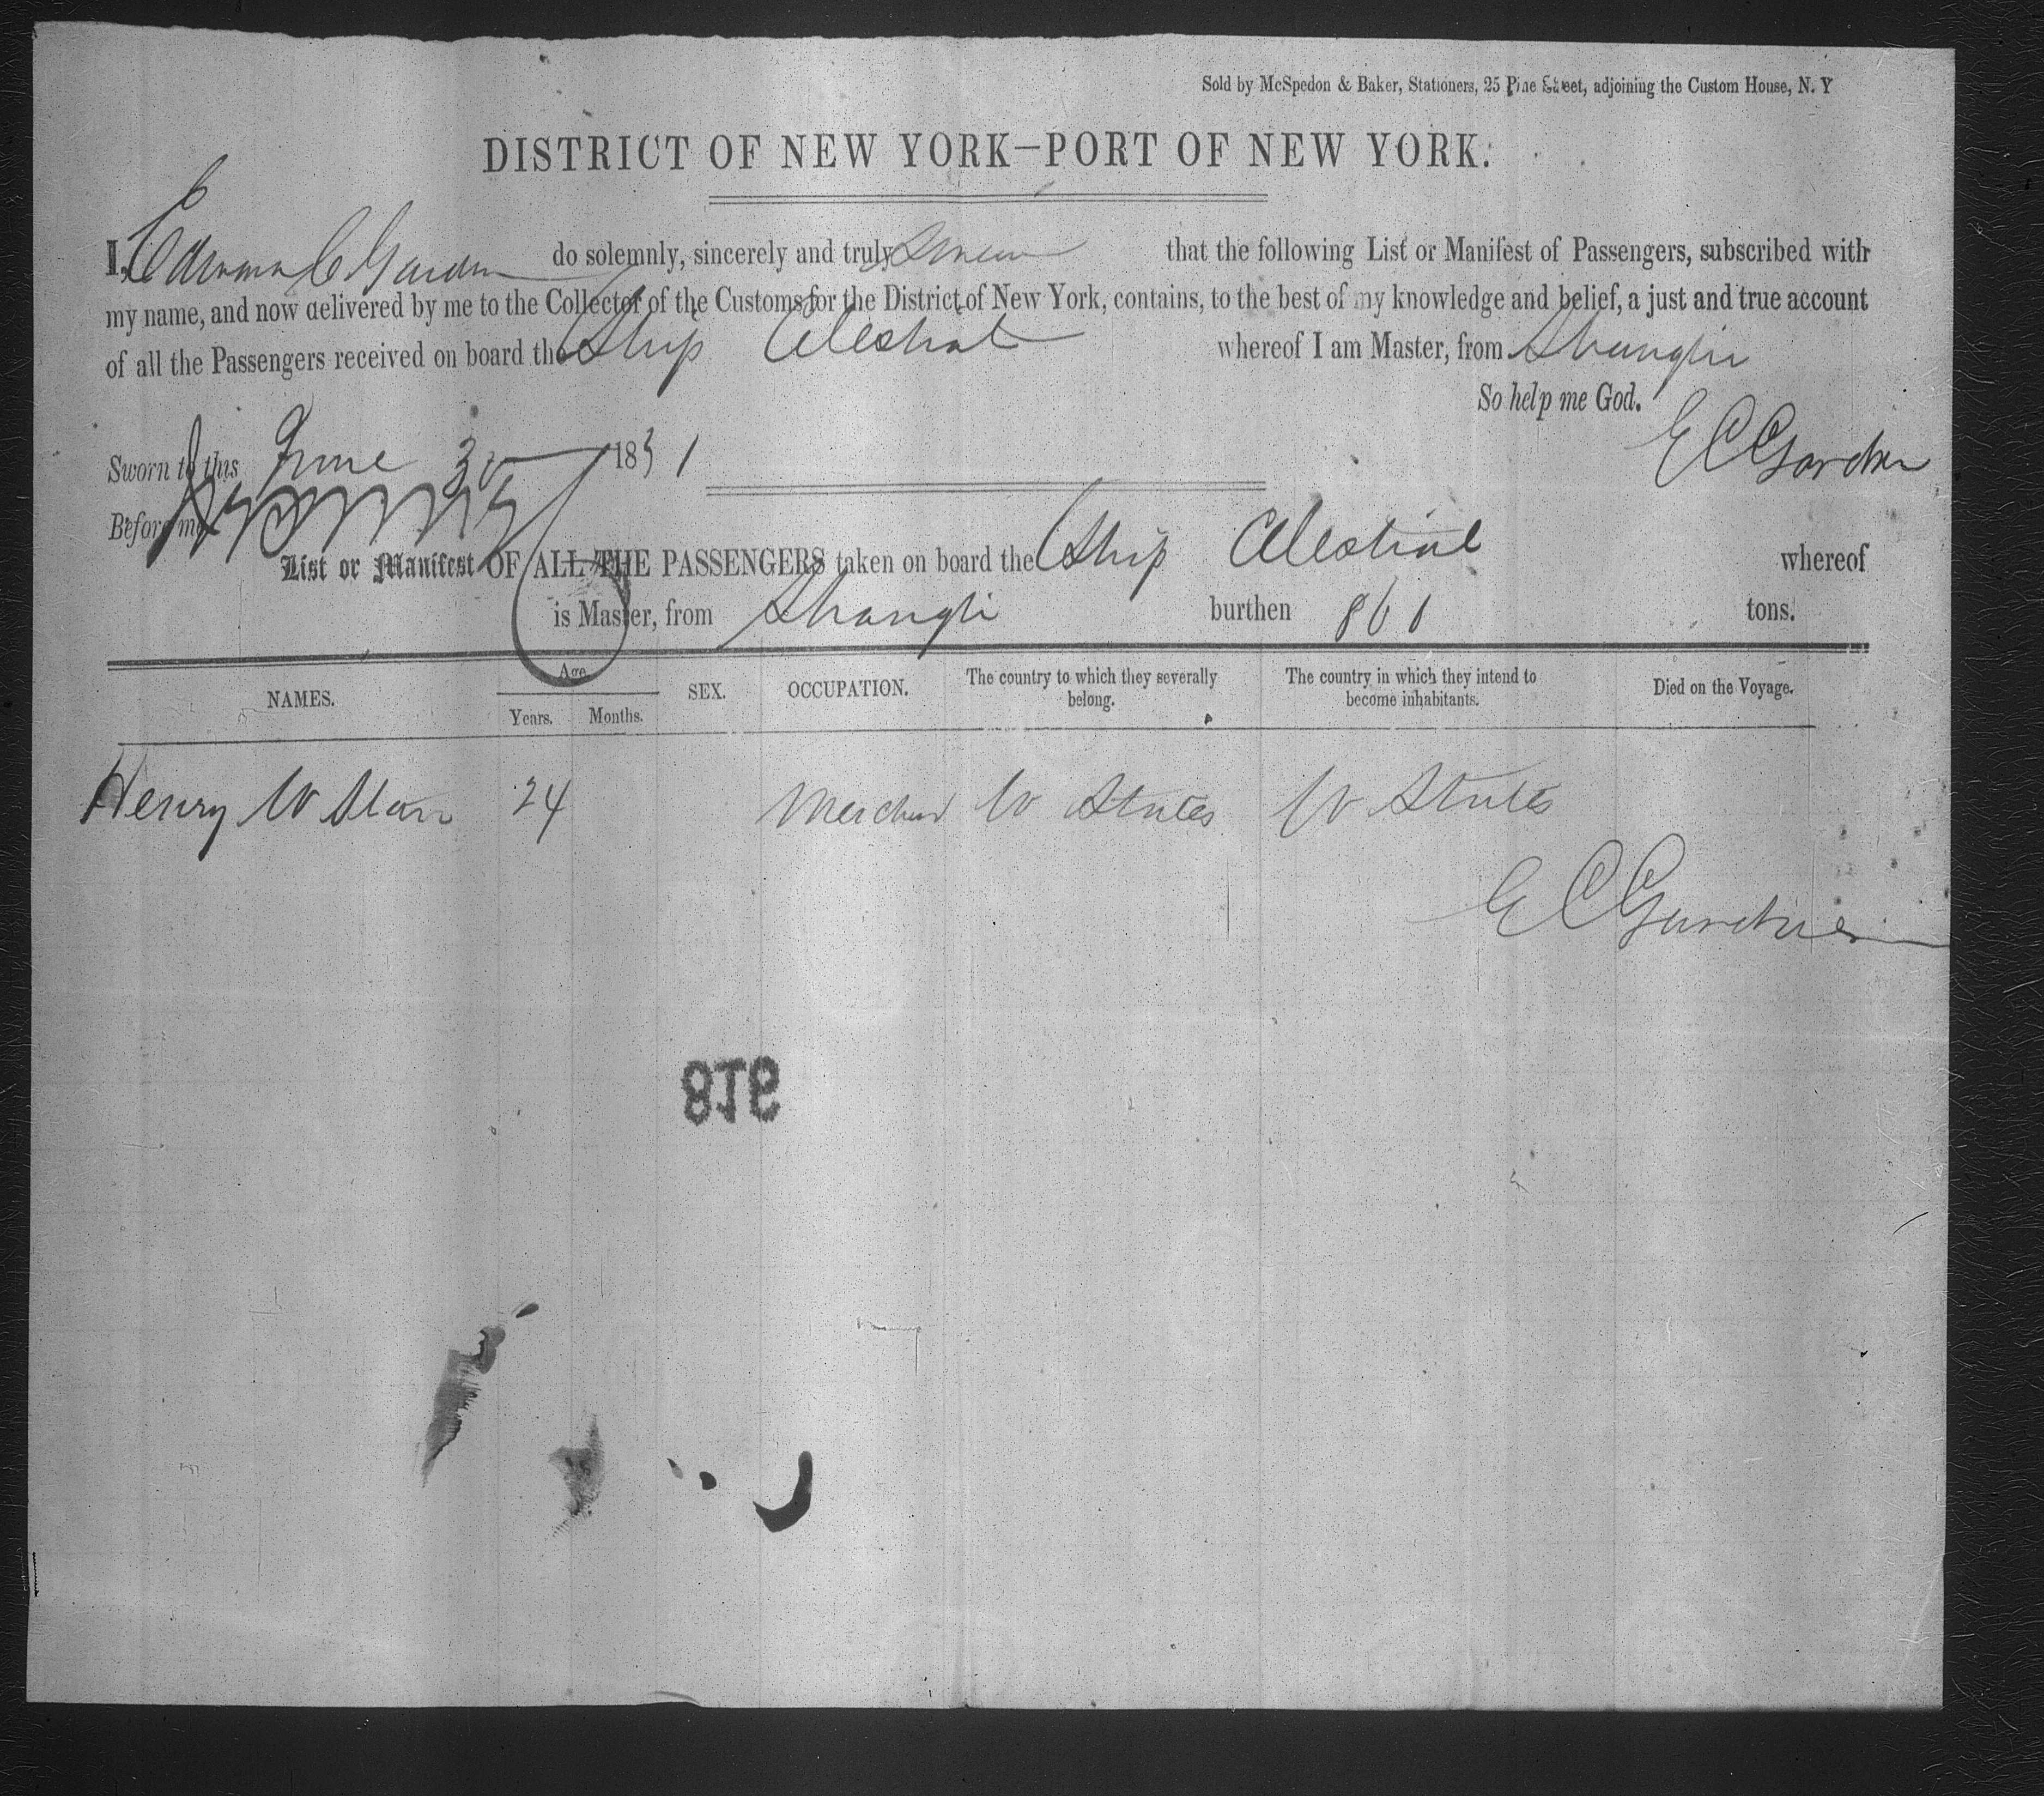 Sold by McSpedon & Baker, Stationers, 25 Pine Street, adjoining the Custom House, N. Y
DISTRICT OF NEW YORK—PORT OF NEW YORK.
I, C Gardner do solemnly, sincerely and truly swear that the following List or Manifest of Passengers, subscribed with
my name, and now delivered by me to the Collector of the Customs for the District of New York, contains, to the best of my knowledge and belief, a just and true account
of all the Passengers received on board the Ship Celestial whereof I am Master, from Shanghi
So help me God.
E C Gardner
Sworn to this June 30 1851
Before me
List or Manifest OF ALL THE PASSENGERS taken on board the Ship Celestial whereof
is Master, from Shanghi burthen 861 tons.
NAMES. Age SEX. OCCUPATION. The country to which they severally belong. The country in which they intend to become inhabitants. Died on the Voyage.
Years. Months.
Henry W 24 Merchant U States U States
E C Gardner
918